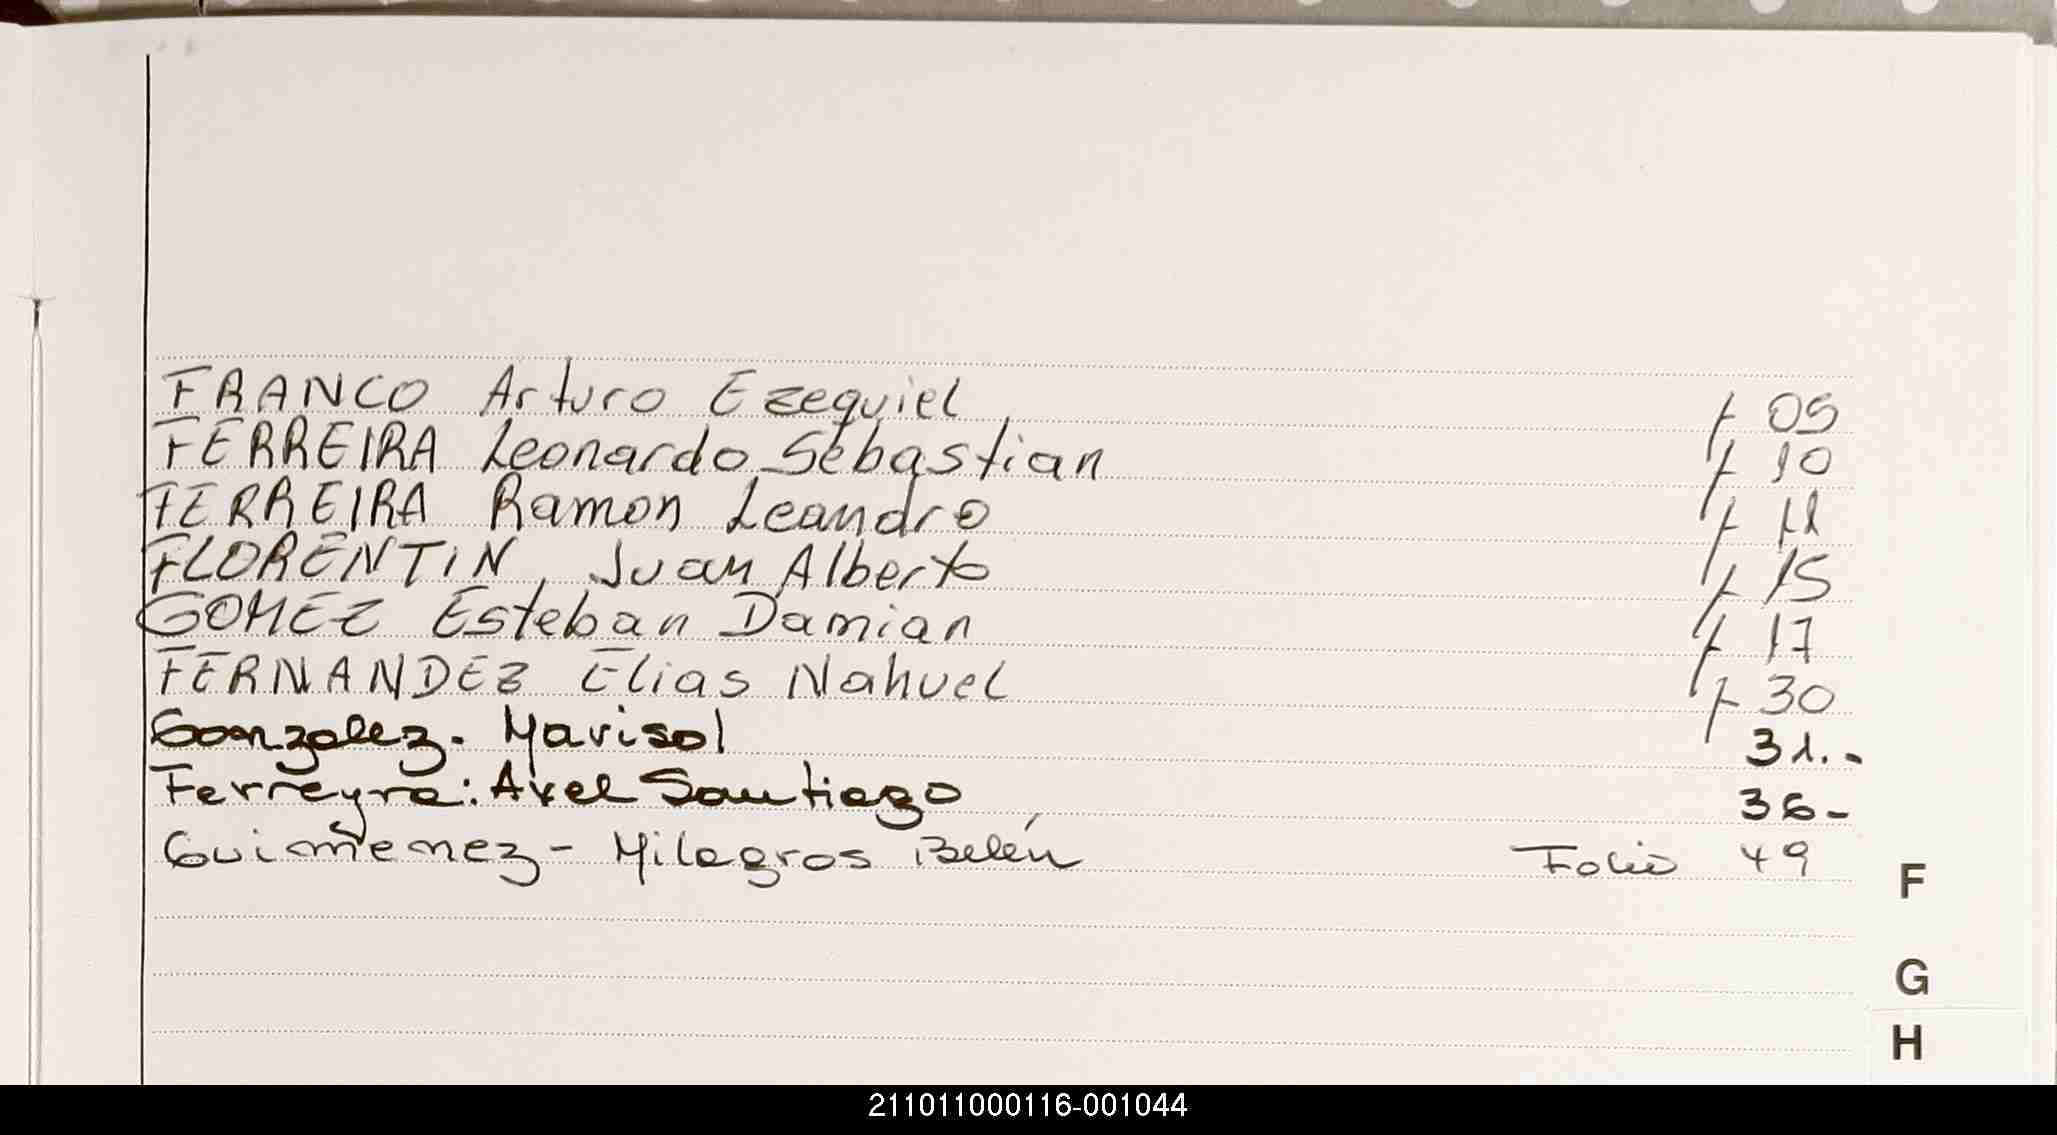 FRANCO Arturo Ezequiel f 05
FERREIRA Leonardo Sebastian f 10
FERREIRA Ramon Leandro f 11
FLORENTIN, Juan Alberto f 15
GOMEZ Esteban Damian f 17
FERNANDEZ Elias Nahuel f 30
Gonzalez. Marisol 31.-
Ferreyra: Axel Santiago 36-
Guimenez - Milagros Belén Folio 49
F
G
H
211011000116-001044